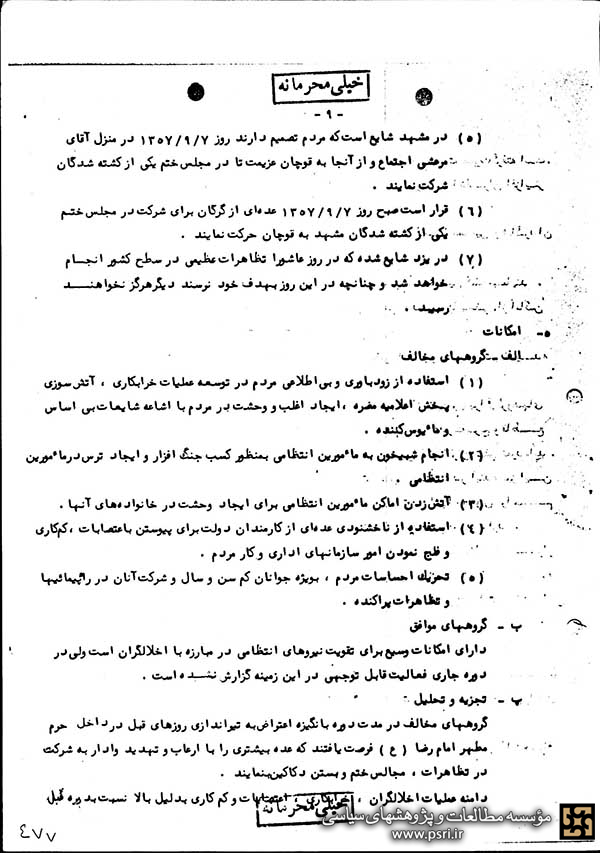 خیلی محرمانه
- ۹ -
(۵) در مشهد شایع است که مردم تصمیم دارند روز ۱۳۵۷/۹/۷ در منزل آقای
مرعشی اجتماع و از آنجا به قوچان عزیمت تا در مجلس ختم یکی از کشته شدگان
شرکت نمایند .
(۶) قرار است صبح روز ۱۳۵۷/۹/۷ عده‌ای از گرگان برای شرکت در مجلس ختم
یکی از کشته شدگان مشهد به قوچان حرکت نمایند .
(۷) در یزد شایع شده که در روز عاشورا تظاهرات عظیمی در سطح کشور انجام
خواهد شد و چنانچه در این روز بهدف خود نرسند دیگر هرگز نخواهند
رسید .
۵- امکانات
الف - گروههای مخالف
(۱) استفاده از زودباوری و بی اطلاعی مردم در توسعه عملیات خرابکاری ، آتش سوزی
پخش اعلامیه مضره ، ایجاد اغلب و وحشت در مردم با اشاعه شایعات بی اساس
و مأیوس کننده .
(۲) انجام شبیخون به مأمورین انتظامی بمنظور کسب جنگ افزار و ایجاد ترس در مأمورین
انتظامی
(۳) آتش زدن اماکن مأمورین انتظامی برای ایجاد وحشت در خانواده‌های آنها .
(۴) استفاده از ناخشنودی عده‌ای از کارمندان دولت برای پیوستن باعتصابات ، کم کاری
و فلج نمودن امور سازمانهای اداری و کار مردم .
(۵) تحریک احساسات مردم ، بویژه جوانان کم سن و سال و شرکت آنان در راهپیمائیها
و تظاهرات پراکنده .
ب - گروههای موافق
دارای امکانات وسیع برای تقویت نیروهای انتظامی در مبارزه با اخلالگران است ولی در
دوره جاری فعالیت قابل توجهی در این زمینه گزارش نشده است .
پ - تجزیه و تحلیل
گروههای مخالف در مدت دوره بانگیزه اعتراض به تیراندازی روزهای قبل در داخل حرم
مطهر امام رضا (ع) فرصت یافتند که عده بیشتری را با ارعاب و تهدید وادار به شرکت
در تظاهرات ، مجالس ختم و بستن دکاکین بنمایند .
دامنه عملیات اخلالگران ، خرابکاری ، اعتصابات و کم کاری بدلیل بالا نسبت بدوره قبل
خیلی محرمانه
۴۷۷
مؤسسه مطالعات و پژوهشهای سیاسی
www.psri.ir